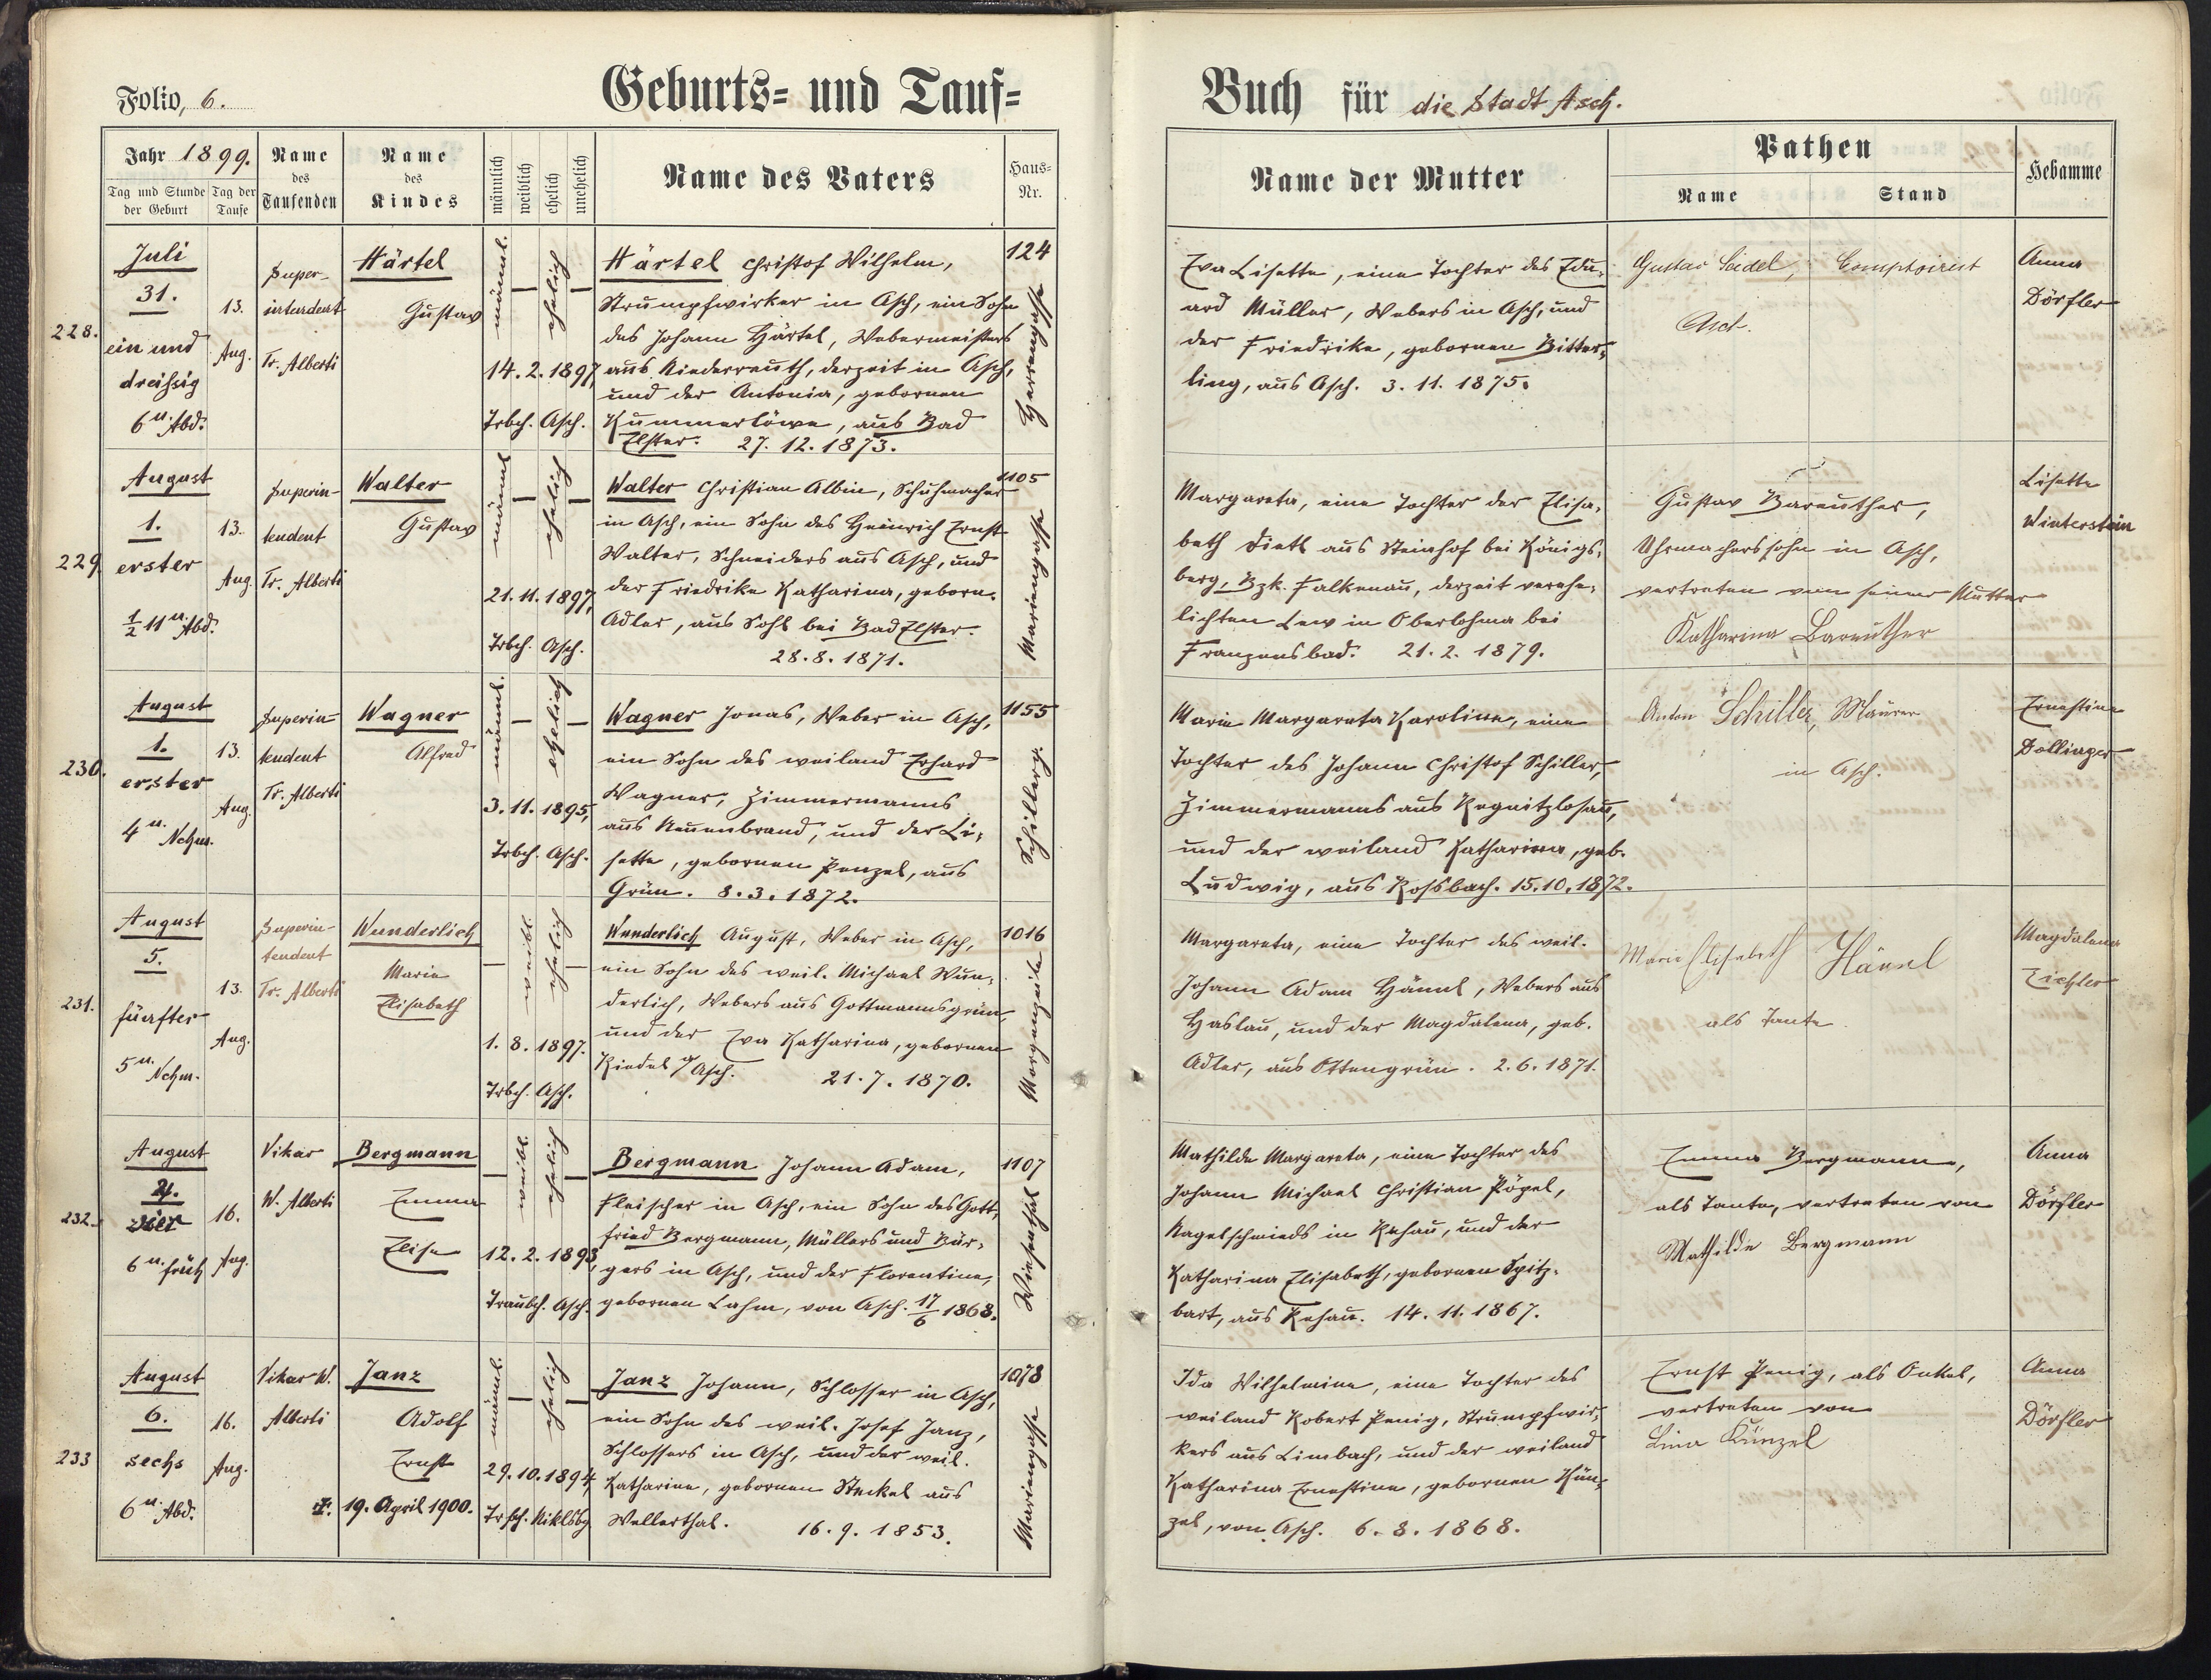 Folio, 6.
Geburts- und Tauf-
Buch für die Stadt Asch.
Jahr 1899.
Tag und Stunde der Geburt
Tag der Taufe
Name des Taufenden
Name des Kindes
männlich
weiblich
ehelich
unehelich
Name des Vaters
Haus-Nr.
Name der Mutter
Pathen
Name
Stand
Hebamme
228.
Juli
31.
ein und
dreißig
6 u. Abd.
13.
Aug.
Super-
intendent
Tr. Alberti
Härtel
Gustav
männl.
ehelich
14. 2. 1897,
Trbch. Asch.
Härtel Christof Wilhelm,
Strumpfwirker in Asch, ein Sohn
des Johann Härtel, Webermeisters
aus Niederreuth, derzeit in Asch,
und der Antonia, gebornen
Kummerlöwe, aus Bad
Elster. 27. 12. 1873.
124
Herrengasse
Eva Lisette, eine Tochter des Edu-
ard Müller, Webers in Asch, und
der Friedrike, gebornen Bitter-
ling, aus Asch. 3. 11. 1875.
Gustav Seidel, Comptoirist
Asch.
Anna
Dörfler
229.
August
1.
erster
½ 11 u. Abd.
13.
Aug.
Superin-
tendent
Tr. Alberti
Walter
Gustav
männl.
ehelich
21. 11. 1897,
Trbch. Asch.
Walter Christian Albin, Schuhmacher
in Asch, ein Sohn des Heinrich Ernst
Walter, Schneiders aus Asch, und
der Friedrike Katharina, geborn.
Adler, aus Sohl bei Bad Elster.
28. 8. 1871.
1105
Mariengasse
Margareta, eine Tochter der Elisa-
beth Dietl aus Steinhof bei Königs-
berg, Bzk. Falkenau, derzeit verehe-
lichten Lew in Oberlohma bei
Franzensbad. 21. 2. 1879.
Gustav Bareuther,
Uhrmacherssohn in Asch,
vertreten von seiner Mutter
Katharina Bareuther
Lisette
Winterstein
230.
August
1.
erster
4 u. Nchm.
13.
Aug.
Superin-
tendent
Tr. Alberti
Wagner
Alfred
männl.
ehelich
3. 11. 1895,
Trbch. Asch.
Wagner Jonas, Weber in Asch,
ein Sohn des weiland Erhard
Wagner, Zimmermanns
aus Neuenbrand, und der Li-
sette, gebornen Penzel, aus
Grün. 8. 3. 1872.
1155
Schillerg.
Marie Margareta Karoline, eine
Tochter des Johann Christof Schiller,
Zimmermanns aus Regnitzlosau,
und der weiland Katharina, geb.
Ludwig, aus Roßbach. 15. 10. 1872.
Anton Schiller, Maurer
in Asch.
Ernestine
Döllinger
231.
August
5.
fünfter
5 u. Nchm.
13.
Aug.
Superin-
tendent
Tr. Alberti
Wunderlich
Marie
Elisabeth
weibl.
ehelich
1. 8. 1897.
Trbch. Asch.
Wunderlich August, Weber in Asch,
ein Sohn des weil. Michael Wun-
derlich, Webers aus Gottmannsgrün,
und der Eva Katharina, gebornen
Riedel a/ Asch. 21. 7. 1870.
1016
Morgenzeile
Margareta, eine Tochter des weil.
Johann Adam Hännl, Webers aus
Haslau, und der Magdalena, geb.
Adler, aus Ottengrün. 2. 6. 1871.
Marie Elisabeth Hännl
als Tante.
Magdalena
Eichler
232.
August
4.
vier
6 u. früh
16.
Aug.
Vikar
W. Alberti
Bergmann
Emma
Elise
weibl.
ehelich
12. 2. 1893,
Traubch. Asch.
Bergmann Johann Adam,
Fleischer in Asch, ein Sohn des Gott-
fried Bergmann, Müllers und Bür-
gers in Asch, und der Florentine,
gebornen Lahm, von Asch. 17/6 1868.
1107
Wiesenthal
Mathilde Margareta, eine Tochter des
Johann Michael Christian Pöpel,
Nagelschmieds in Rehau, und der
Katharina Elisabeth, gebornen Spitz-
bart, aus Rehau. 14. 11. 1867.
Emma Bergmann,
als Tante, vertreten von
Mathilde Bergmann
Anna
Dörfler
233
August
6.
sechs
6 u. Abd.
16.
Aug.
Vikar W.
Alberti
Janz
Adolf
Ernst
†. 19. April 1900.
männl.
ehelich
29. 10. 1894,
Trsch. Niklsbg
Janz Johann, Schlosser in Asch,
ein Sohn des weil. Josef Janz,
Schlossers in Asch, und der weil.
Katharine, gebornen Stekel aus
Wellerthal. 16. 9. 1853.
1078
Mariengasse
Ida Wilhelmine, eine Tochter des
weiland Robert Penig, Strumpfwir-
kers aus Limbach, und der weiland
Katharina Ernestine, gebornen Kün-
zel, von Asch. 6. 8. 1868.
Ernst Penig, als Onkel,
vertreten von
Lina Künzel
Anna
Dörfler